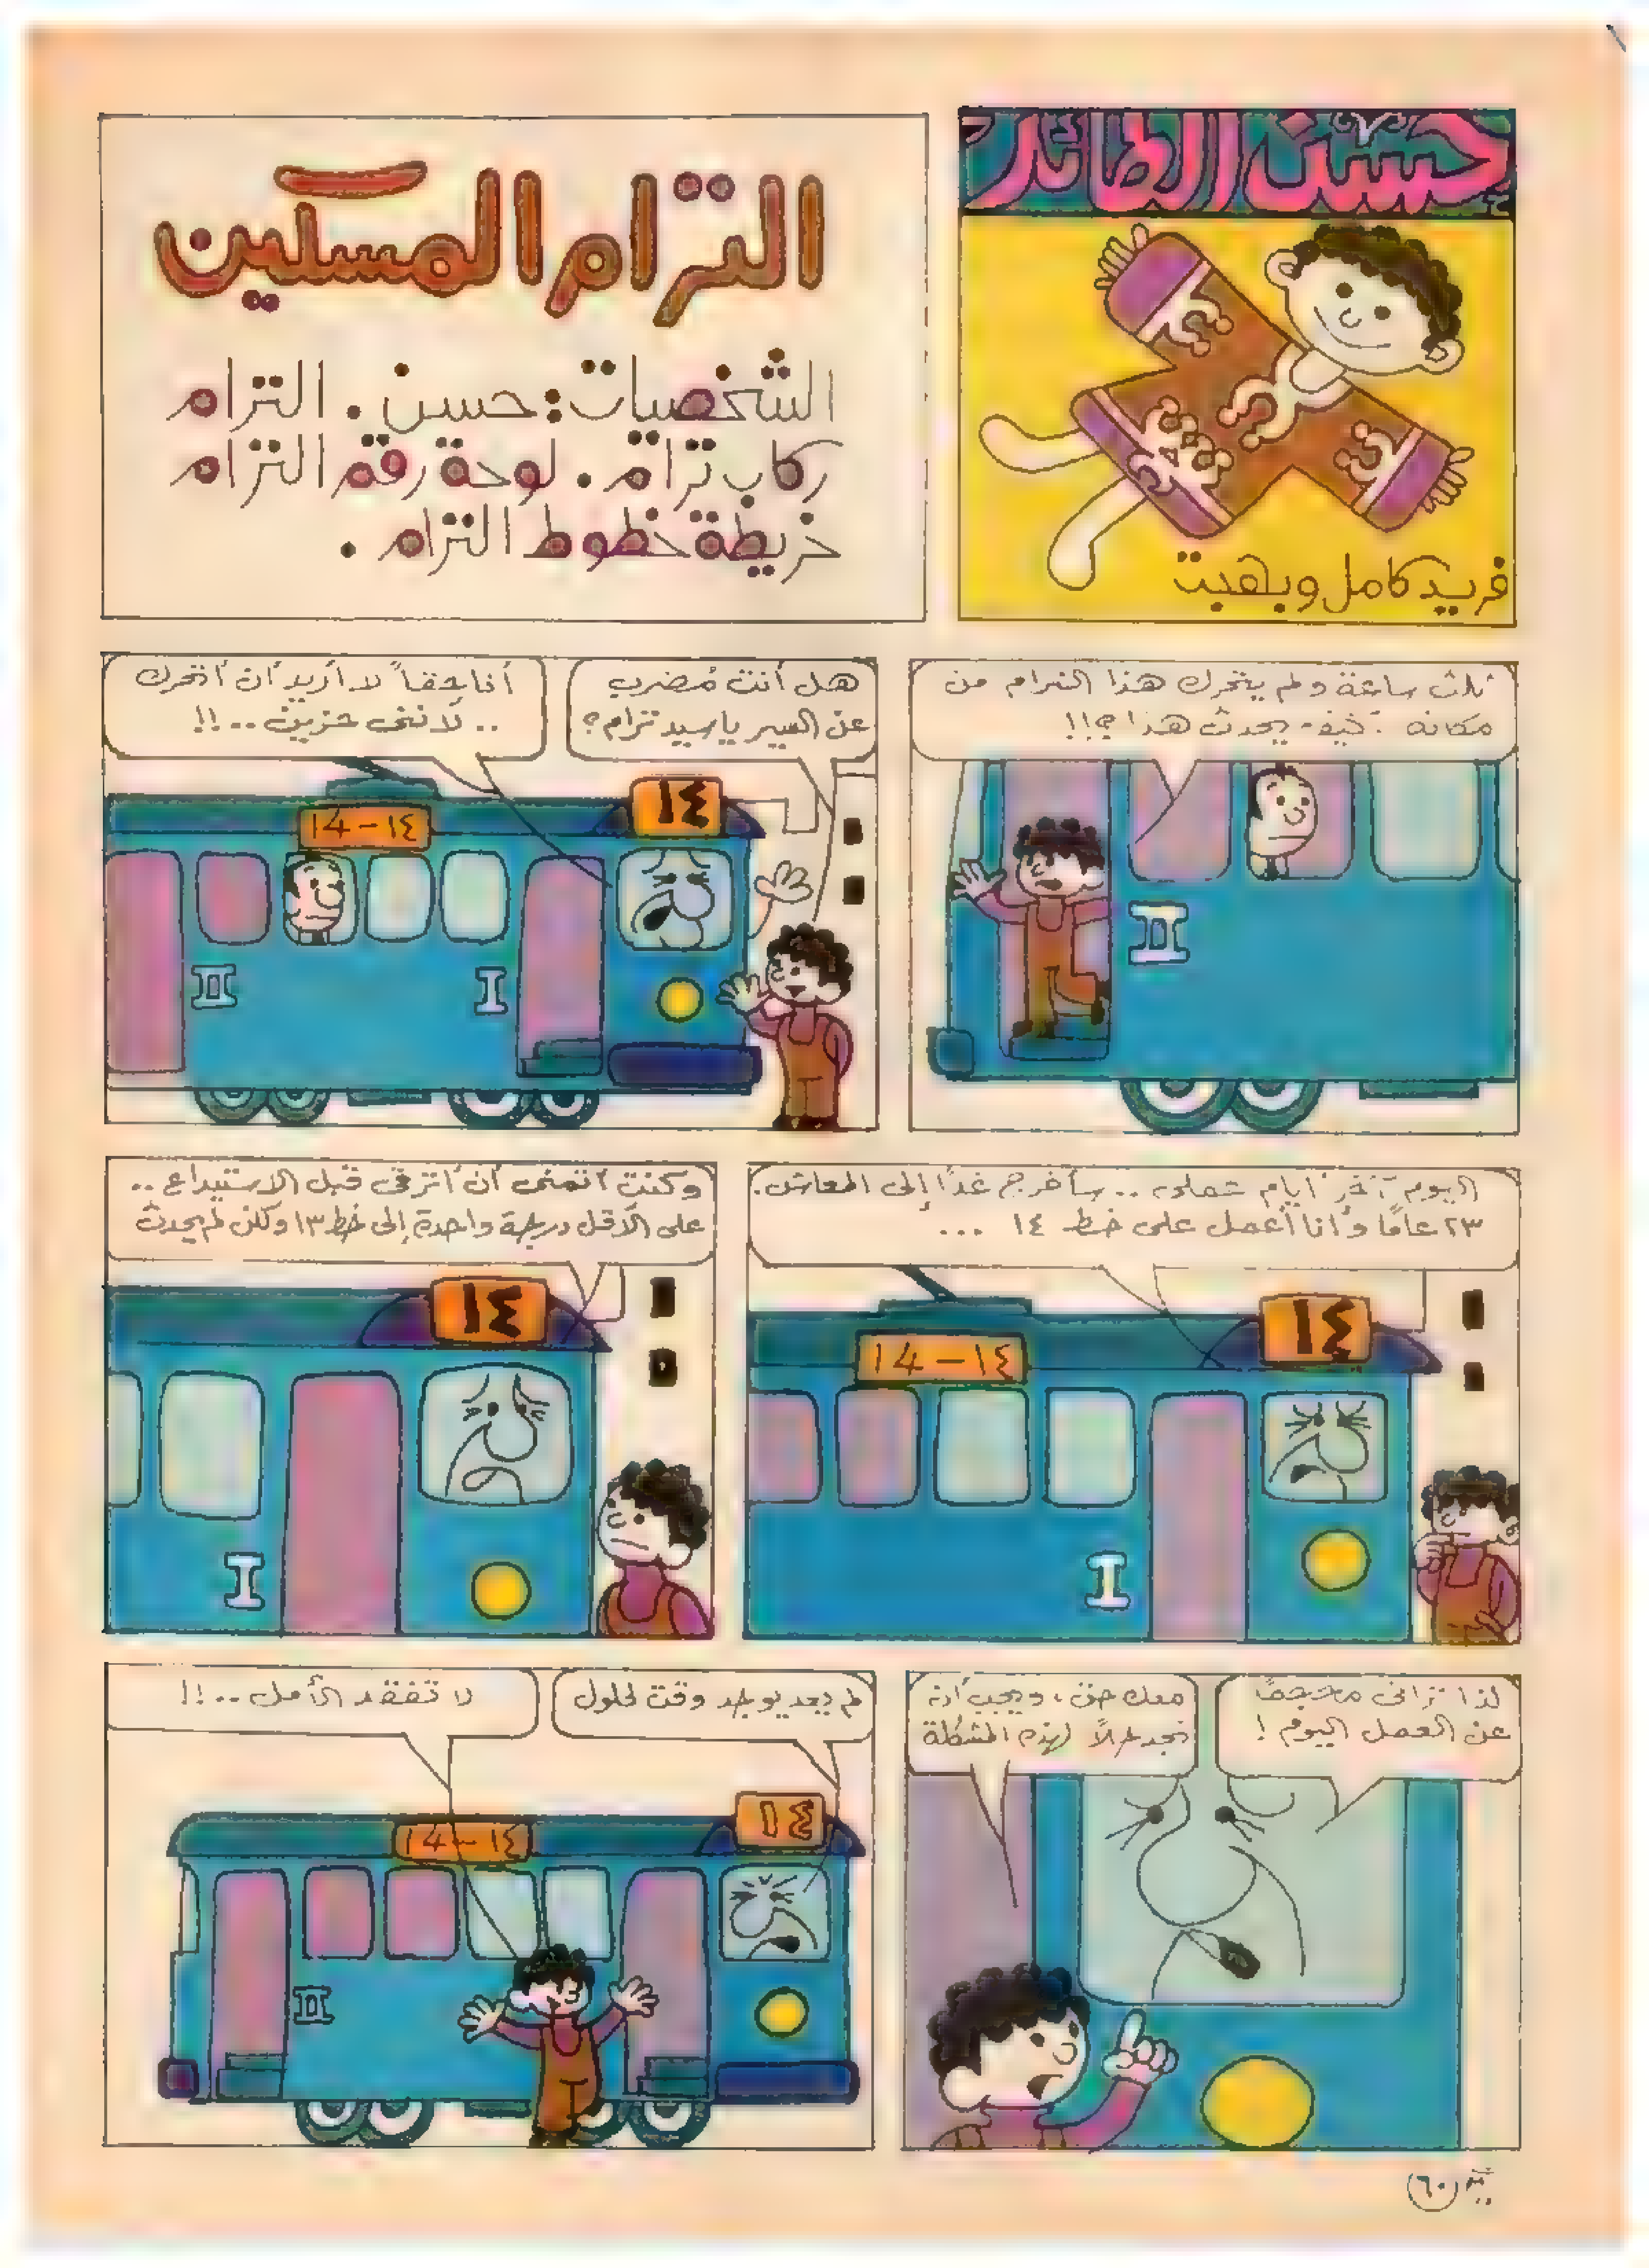 حسن الطائر
فريد كامل وبهجت
الترام المسكين
الشخصيات: حسن. الترام
ركاب ترام. لوحة رقم الترام
خريطة خطوط الترام.
ثلث ساعة ولم يتحرك هذا الترام من
مكانه. كيف يحدث هذا؟!!
II
هل أنت مُضرب
عن السير يا سيد ترام؟
أنا حقاً لا أريد أن أتحرك
.. لأننى حزين..!!
١٤
١٤ - 14
II
I
اليوم آخر أيام عملى .. سأخرج غداً إلى المعاش.
٢٣ عامًا وأنا أعمل على خط ١٤ ...
١٤
١٤ - 14
I
وكنت أتمنى أن أترقى قبل الاستيداع ..
على الأقل درجة واحدة إلى خط ١٣ ولكن لم يحدث
١٤
I
لذا ترانى محجمًا
عن العمل اليوم!
معك حق، ويجب أن
نجد حلاً لهذه المشكلة
لم يعد يوجد وقت لحلول
لا تفقد الأمل ..!!
١٤
١٤ - 14
II
٦٠